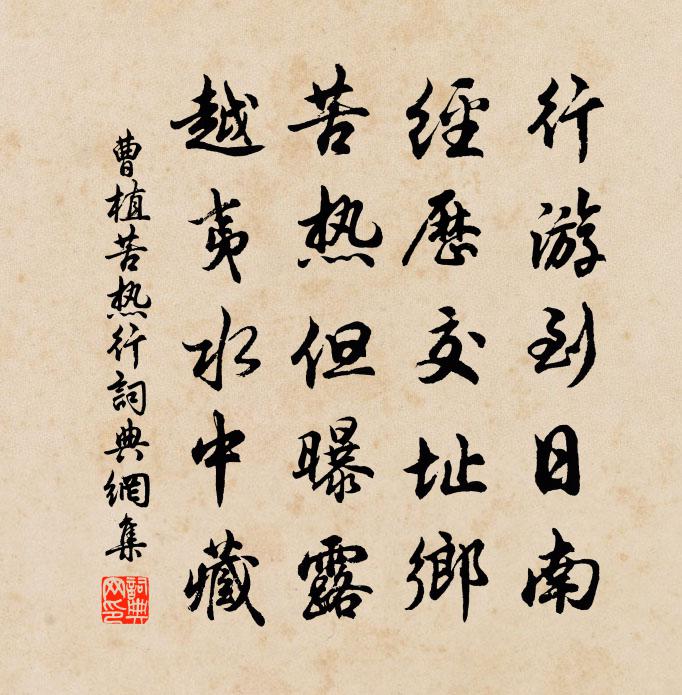 行游到日南
經歷交址鄉
苦热但曝露
越夷水中藏
曹植苦热行詞典網集
詞典网印